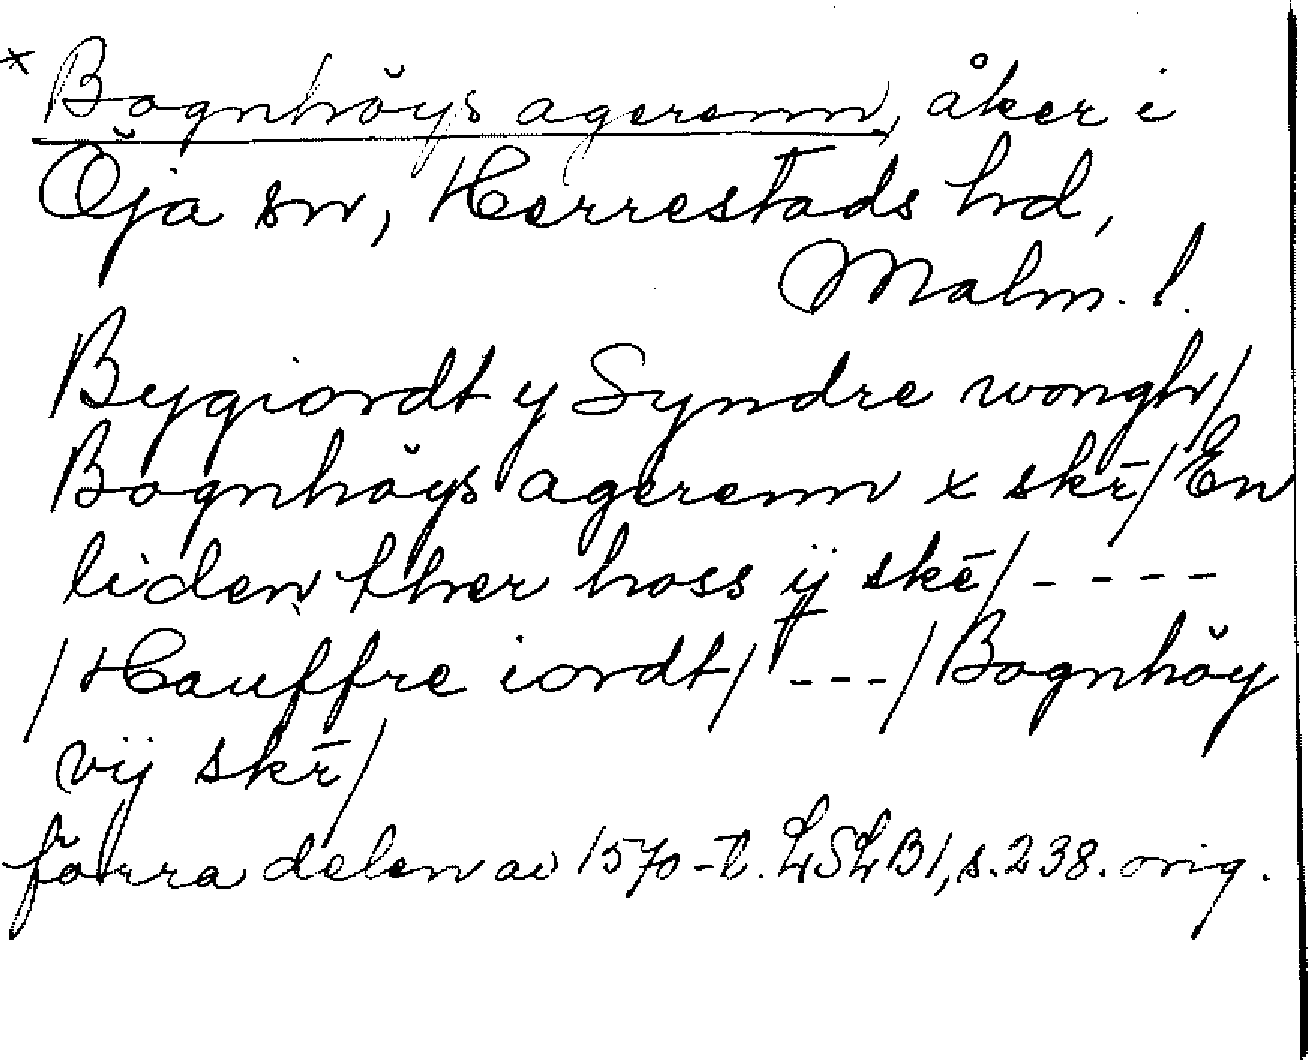 * Bognhöys agerenn, åker i
Öja sn, Herrestads hd,
Malm. l.
Bygiordt y Syndre wongh/
Bognhöys agerenn x skr̄/ En
liden ther hoss ij skē/ - - - -
/Hauffre iordt/ - - - /Bognhöy
vij skr̄/
förra delen av 1570-t. LSLB1, s. 238. orig.